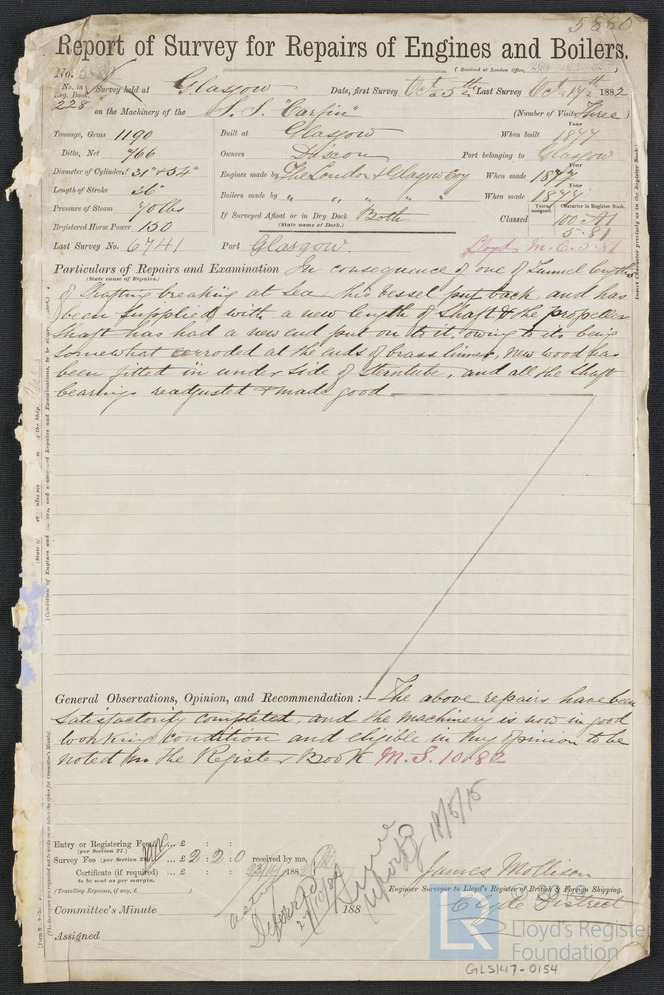 5880
Report of Survey for Repairs of Engines and Boilers.
(Received at London Office,
No.
No. in Eng. Book. Survey held at Glasgow Date, first Survey Oct 5th Last Survey Oct 17th 1882
228 on the Machinery of the S.S. "Carfin" (Number of Visits Three)
Tonnage, Gross 1190 Built at Glasgow When built Year 1877
Ditto, Net 766 Owners Dixon Port belonging to Glasgow
Diameter of Cylinders 31" & 54" Engines made by The London & Glasgow Coy When made Year 1877
Length of Stroke 36" Boilers made by " " " " " When made Year 1877
Pressure of Steam 70 lbs If Surveyed Afloat or in Dry Dock Both Classed Years assigned. Character in Register Book. 100 A1
Registered Horse Power 150 (State name of Dock.) 5-81
Last Survey No. 6741 Port Glasgow. Lloyds M.C. 5-81
Particulars of Repairs and Examination In consequence of one of Tunnel lengths
(State cause of Repairs.)
of Shafting breaking at Sea this vessel put back and has
been supplied with a new length of shaft & the propeller
shaft has had a new end put on to it, owing to its being
somewhat corroded at the ends of brass liner, new wood has
been fitted in under side of Sterntube, and all the Shaft
bearings readjusted & made good
General Observations, Opinion, and Recommendation :— The above repairs have been
satisfactorily completed, and the machinery is now in good
working condition and eligible in my opinion to be
noted in the Register Book M.S. 10.82
18/5/15
Entry or Registering Fee ... £ : :
(per Section 27.)
Survey Fee (per Section ... £ 2 : 2 : 0 received by me,
Certificate (if required) ... £ : : 188
to be sent as per margin.
(Travelling Expenses, if any, £
James Mollison
Engineer Surveyor to Lloyd's Register of British & Foreign Shipping.
Committee's Minute 188
Clyde District
Assigned
LR Lloyd's Register Foundation
GLS147-0154